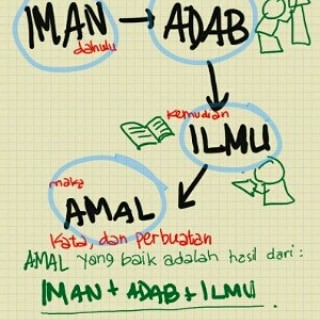 IMAN → ADAB
dahulu
kemudian
ILMU
maka
AMAL
Kata, dan perbuatan
AMAL yang baik adalah hasil dari :
IMAN + ADAB + ILMU.